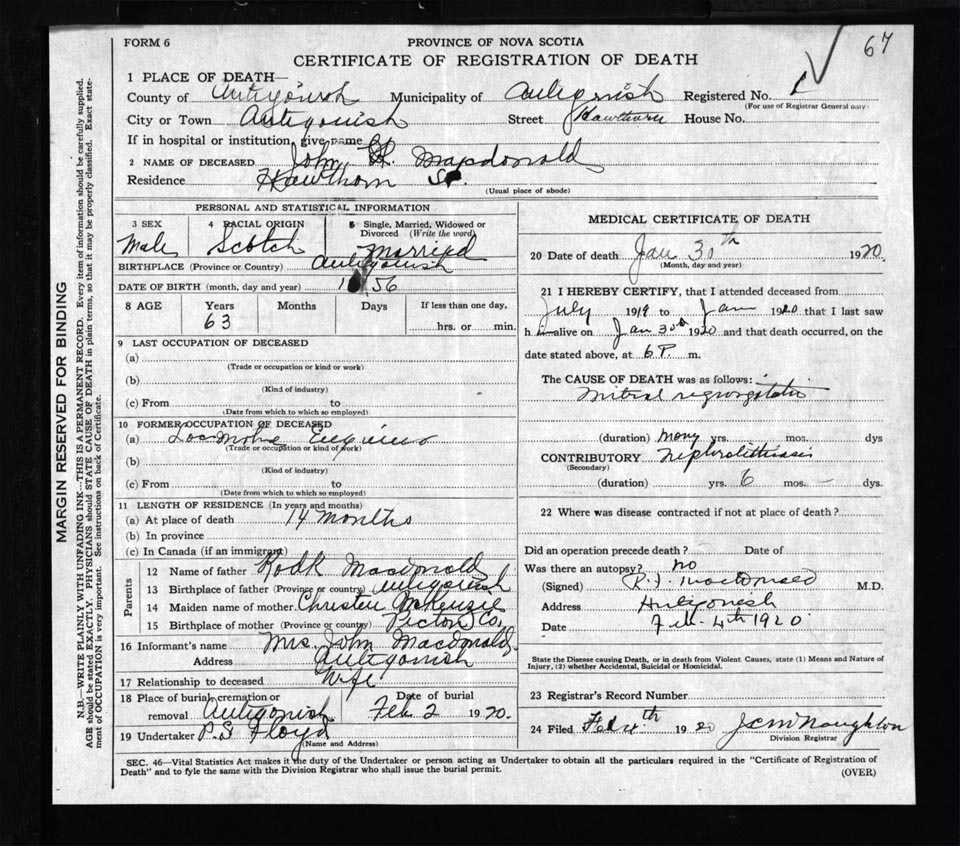 67
FORM 6
PROVINCE OF NOVA SCOTIA
CERTIFICATE OF REGISTRATION OF DEATH
1 PLACE OF DEATH—
County of Antigonish Municipality of Antigonish Registered No.
(For use of Registrar General only)
City or Town Antigonish Street Hawthorne House No.
If in hospital or institution, give name
2 NAME OF DECEASED John Macdonald
Residence Hawthorn St.
(Usual place of abode)
PERSONAL AND STATISTICAL INFORMATION
3 SEX Male
4 RACIAL ORIGIN Scotch
5 Single, Married, Widowed or Divorced (Write the word) Married
BIRTHPLACE (Province or Country) Antigonish
DATE OF BIRTH (month, day and year) 1856
8 AGE Years 63 Months Days If less than one day, hrs. or min.
9 LAST OCCUPATION OF DECEASED
(a)
(Trade or occupation or kind or work)
(b)
(Kind of industry)
(c) From to
(Date from which to which so employed)
10 FORMER OCCUPATION OF DECEASED
(a) Locomotive
(Trade or occupation or kind of work)
(b)
(Kind of industry)
(c) From to
(Date from which to which so employed)
11 LENGTH OF RESIDENCE (In years and months)
(a) At place of death 14 months
(b) In province
(c) In Canada (if an immigrant)
Parents
12 Name of father Rodk Macdonald
13 Birthplace of father (Province or country) Antigonish
14 Maiden name of mother McKenzie
15 Birthplace of mother (Province or country) Pictou Co.
16 Informant's name Mrs. John Macdonald
Address Antigonish
17 Relationship to deceased Wife
18 Place of burial, cremation or removal Antigonish Date of burial Feb. 2 1920.
19 Undertaker P.S. Floyd
(Name and Address)
MEDICAL CERTIFICATE OF DEATH
20 Date of death Jan 30th 1920.
(Month, day and year)
21 I HEREBY CERTIFY, that I attended deceased from
July 1919 to Jan 1920 that I last saw
h im alive on Jan 30th 1920 and that death occurred, on the
date stated above, at 6 P. m.
The CAUSE OF DEATH was as follows:
Mitral regurgitation
(duration) many yrs. mos. dys
CONTRIBUTORY Nephrolithiasis
(Secondary)
(duration) yrs. 6 mos. – dys.
22 Where was disease contracted if not at place of death?
Did an operation precede death? Date of
Was there an autopsy? no
(Signed) Macdonald M.D.
Address Antigonish
Date Feb. 4th 1920
State the Disease causing Death, or in death from Violent Causes, state (1) Means and Nature of
Injury, (2) whether Accidental, Suicidal or Homicidal.
23 Registrar's Record Number
24 Filed Feb 4th 1920
Division Registrar
SEC. 46—Vital Statistics Act makes it the duty of the Undertaker or person acting as Undertaker to obtain all the particulars required in the "Certificate of Registration of
Death" and to fyle the same with the Division Registrar who shall issue the burial permit.
(OVER)
MARGIN RESERVED FOR BINDING
N.B.—WRITE PLAINLY WITH UNFADING INK—THIS IS A PERMANENT RECORD. Every item of information should be carefully supplied.
AGE should be stated EXACTLY. PHYSICIANS should STATE CAUSE OF DEATH in plain terms, so that it may be properly classified. Exact state-
ment of OCCUPATION is very important. See instructions on back of Certificate.